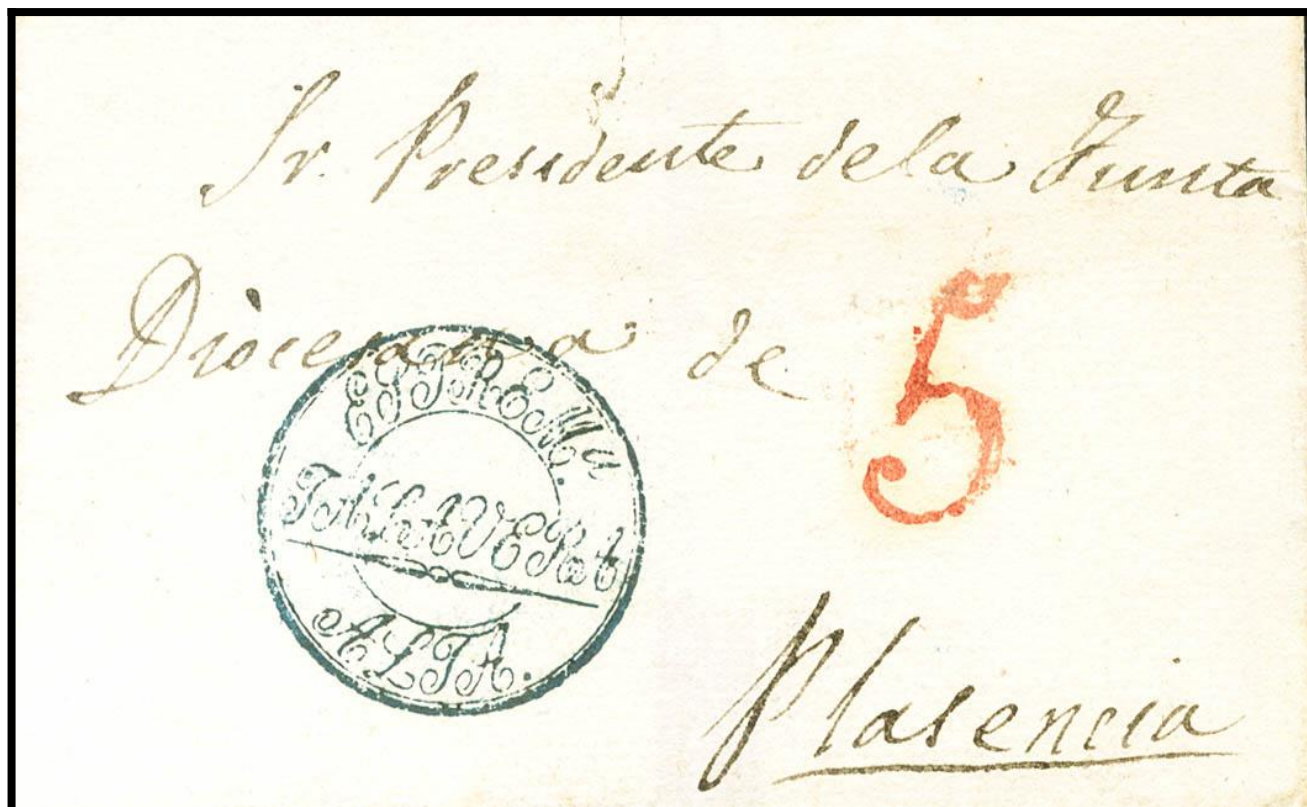 Sr. Presidente de la Junta
Diòcesana de
5
ESTREMa.
TALAVERA
ALTA.
Plasencia